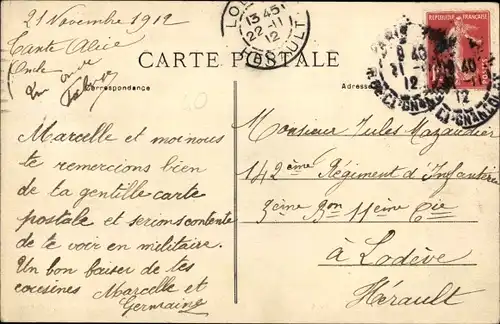 21 Novembre 1912
Tante Alice
Oncle
CARTE POSTALE
Correspondance
Adresse
RÉPUBLIQUE FRANÇAISE
POSTES
PARIS
LO
13 45
22-11
12
HERAULT
Marcelle et moi nous
te remercions bien
de ta gentille carte
postale et serions contente
de te voir en militaire.
Un bon baiser de tes
cousines Marcelle et
Germaine
Monsieur Jules Mazaudier
142ème Régiment d'Infanterie
3ème Bon 11ème Cie
à Lodève
Hérault